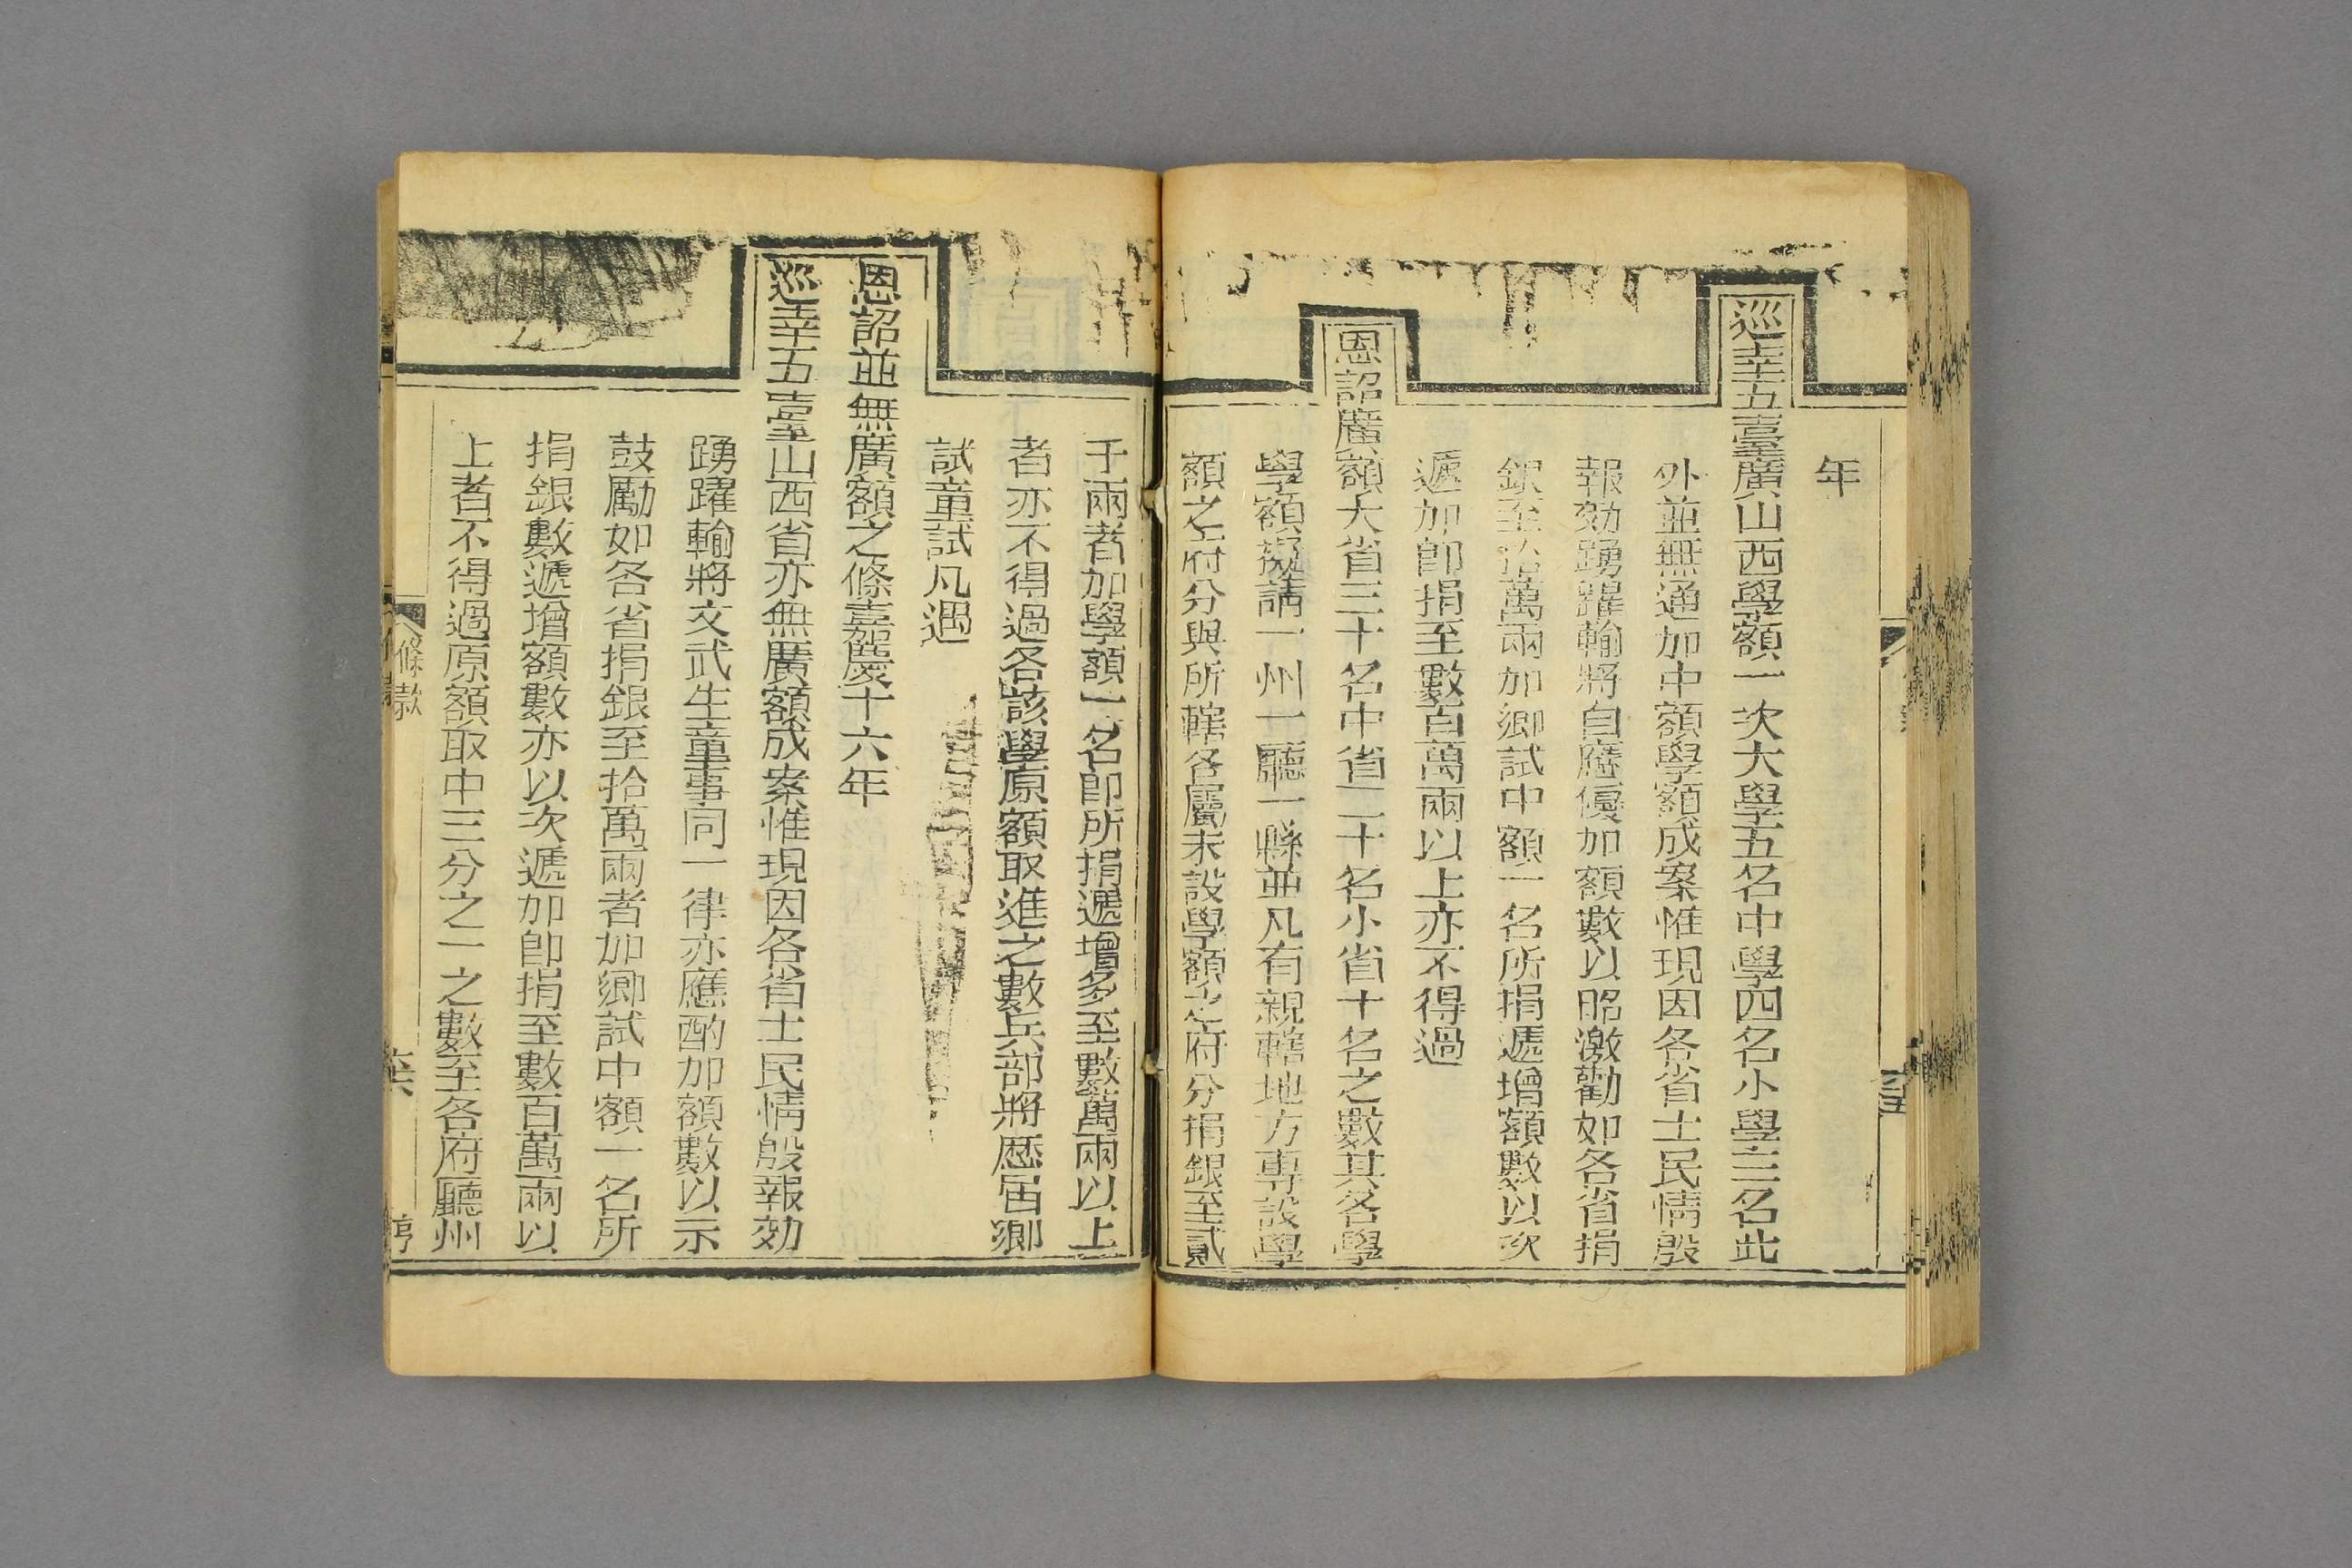 年
巡幸五臺廣山西學額一次大學五名中學四名小學三名此
外並無通加中額學額成案惟現因各省士民情殷
報効踴躍輸將自應優加額數以昭激勸如各省捐
銀至拾萬兩加鄉試中額一名所捐遞增額數以次
遞加卽捐至數百萬兩以上亦不得過
恩詔廣額大省三十名中省二十名小省十名之數其各學
學額擬請一州一廳一縣並凡有親轄地方專設學
額之府分與所轄各屬未設學額之府分捐銀至貳
千兩者加學額一名卽所捐遞增多至數萬兩以上
者亦不得過各該學原額取進之數兵部將歷届鄉
試童試凡遇
恩詔並無廣額之條嘉慶十六年
巡幸五臺山西省亦無廣額成案惟現因各省士民情殷報効
踴躍輸將文武生童事同一律亦應酌加額數以示
鼓勵如各省捐銀至拾萬兩者加鄉試中額一名所
捐銀數遞增額數亦以次遞加卽捐至數百萬兩以
上者不得過原額取中三分之一之數至各府廳州
條款